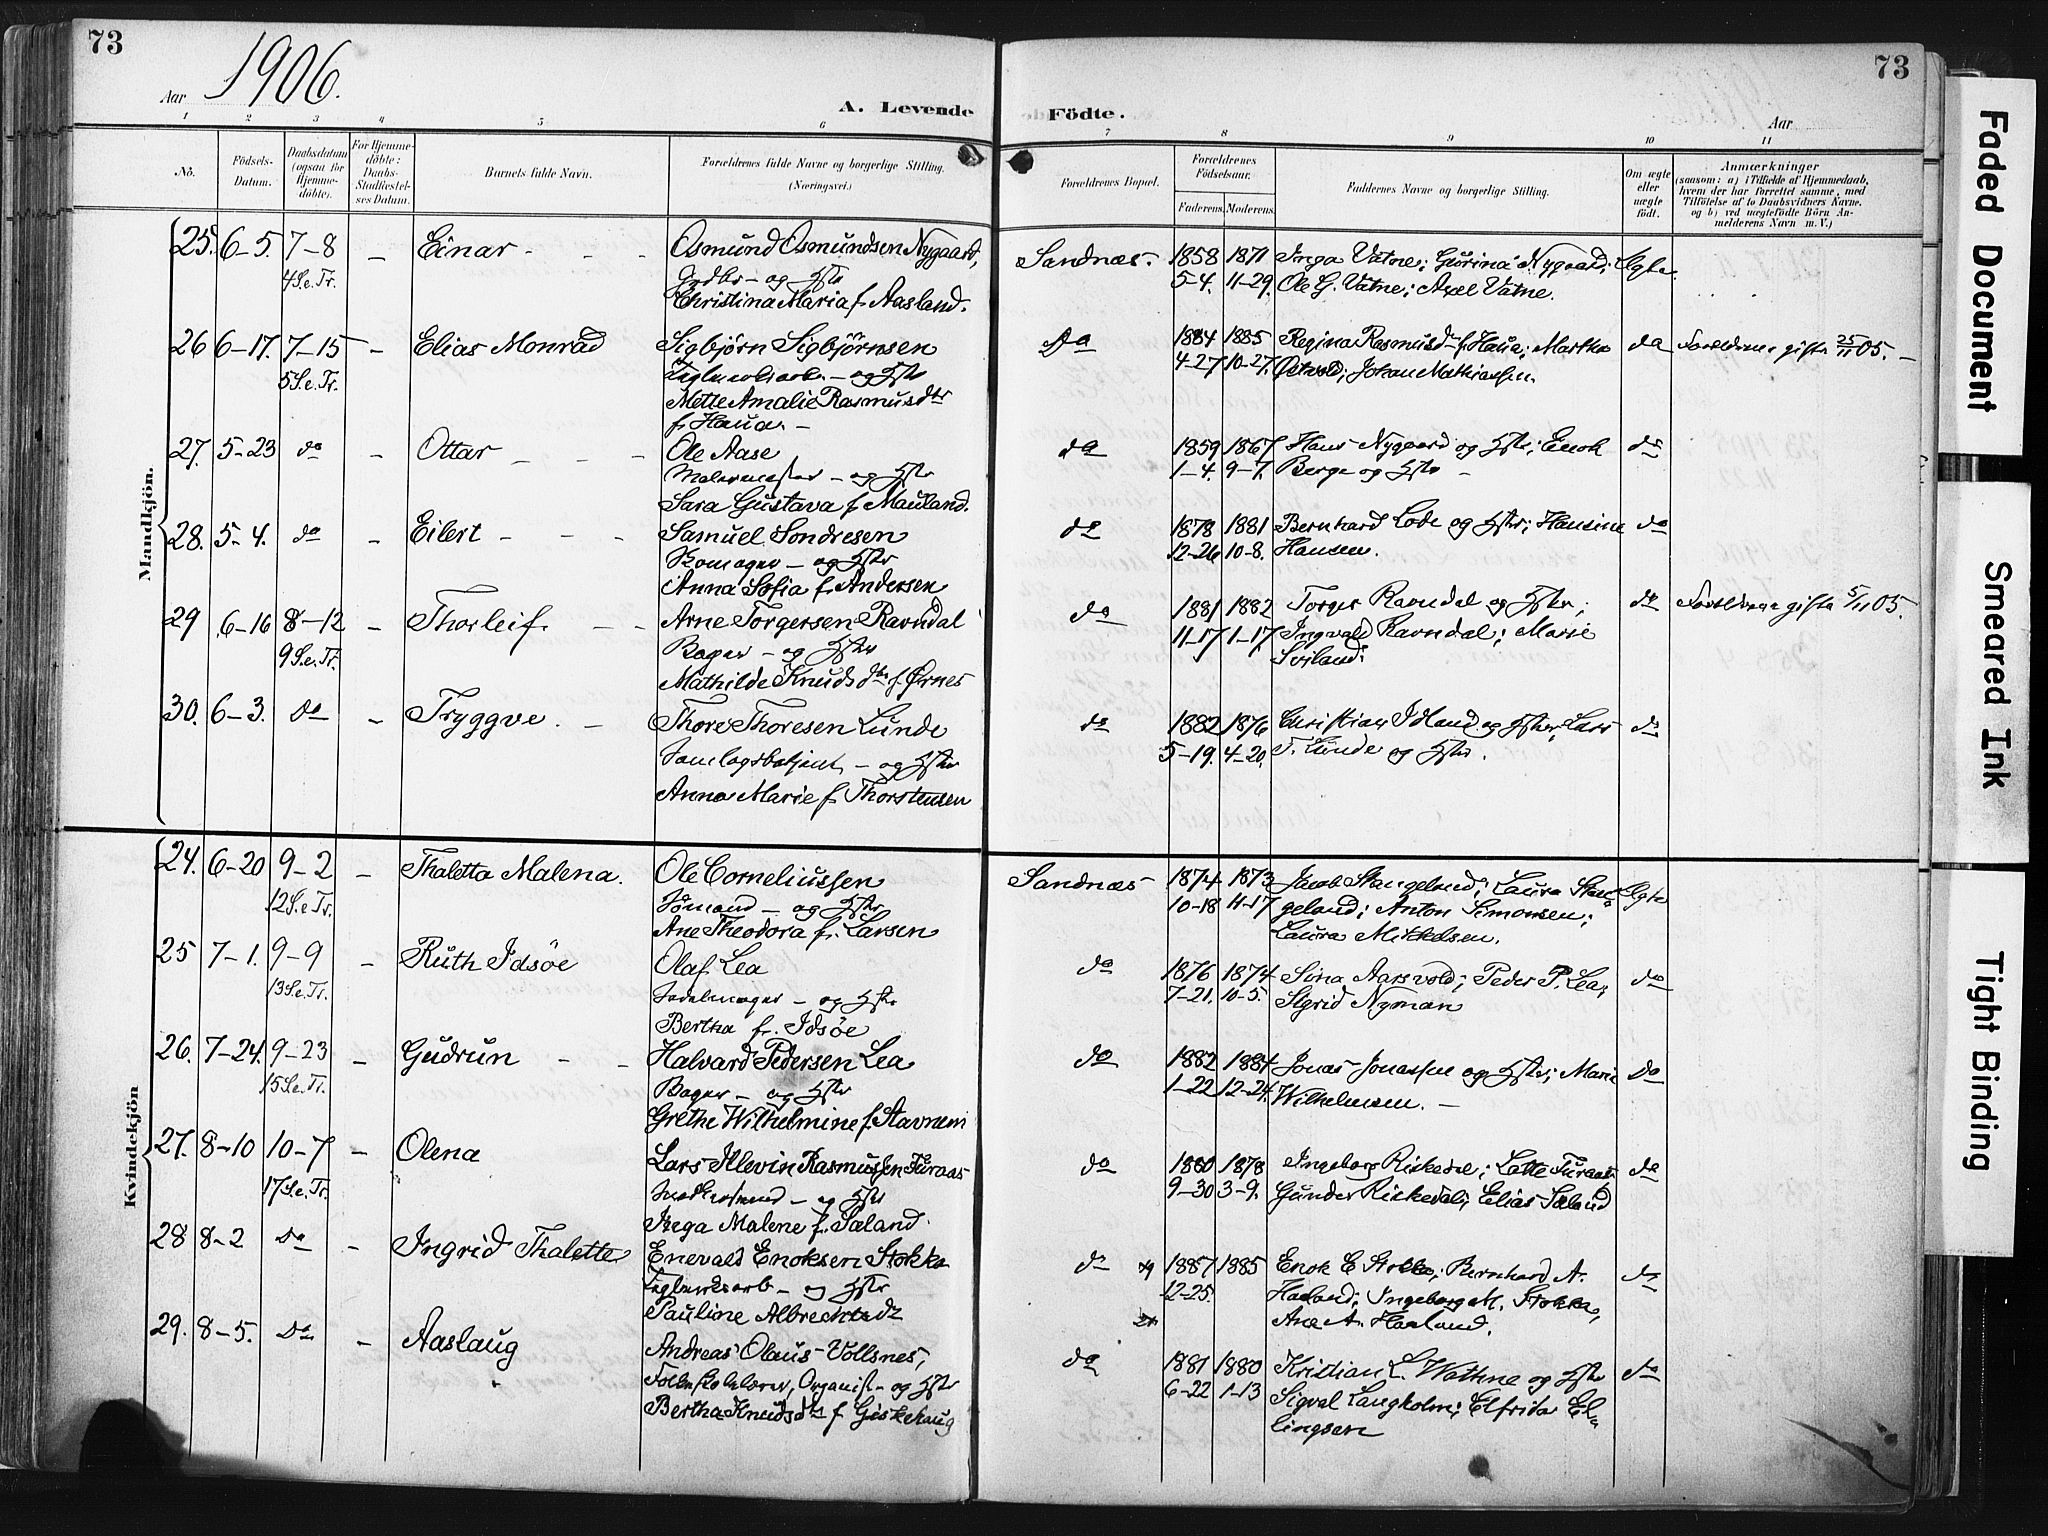 73
1906.
Aar
A. Levende
1 2 3 4 5 6
No.
Födsels-
Datum.
Daabsdatum
(ogsaa for
Hjemme-
döbte).
For Hjemme-
döbte:
Daabs-
Stadfæstel-
ses Datum.
Barnets fulde Navn.
Forældrenes fulde Navne og borgerlige Stilling.
(Næringsvei.)
Mandkjön.
25. 6-5. 7-8 – Einar - - - Osmund Osmundsen Nygaard,
4 S. e. Tr. – og Hstr
Christina Maria f. Aasland.
26 6-17. 7-15 – Elias Monrad Sigbjørn Sigbjørnsen
5 S. e. Tr. – og Hstr
Mette Amalie Rasmusdtr
f. Haua. –
27. 5-23 do – Ottar – – – Ole Aase
Malermester – og Hstr
Sara Gustava f. Mauland.
28. 5-4. do – Eilert – – – Samuel Sondresen
– og Hstr
Anna Sofia f. Andersen
29 6-16 8-12 – Thorleif. – – Arne Torgersen Ravndal
9 S. e. Tr. Bager – og Hstr
Mathilde Knudsdtr f. Ørnes
30. 6-3. Do – Tryggve. – Thore Thoresen Lunde
Samlagsbetjent – og Hstr
Anna Marie f. Thorstensen
Kvindekjön
24. 6-20 9-2 – Thaletta Malena. Ole Corneliussen
12 S. e. Tr. Sömand – og Hstr
Ane Theodora f. Larsen
25 7-1. 9-9 – Ruth Idsöe Olaf Lea
13 S. e. Tr. Sadelmager – og Hstr
Bertha f. Idsöe
26. 7-24. 9-23 – Gudrun – – Halvard Pedersen Lea
15 S. e. Tr. Bager – og Hstr
Grethe Wilhelmine f. Stavnem
27. 8-10 10-7 – Olena Lars Hlevin Rasmussen Furaas
17 S. e. Tr. – og Hstr
Inga Malene f. Sæland.
28 8-2 Do – Ingrid Thalette Enevald Enoksen Stokka
Teglverksarb – og Hstr
Pauline Albrechtsdr
29. 8-5. Do – Aaslaug Andreas Olaus Vollsnes,
Folkeskolelærer, Organist – og Hstr
Bertha Knudsdtr f. Giskehaug
73
Födte.
Aar
7 8 9 10 11
Forældrenes Bopæl.
Forældrenes
Födselsaar.
Faderens. Moderens.
Faddernes Navne og borgerlige Stilling.
Om ægte
eller
uægte
födt.
Anmærkninger
(saasom: a) i Tilfælde af Hjemmedaab,
hvem der har forrettet samme, med
Tilföielse af to Daabsvidners Navne.
og b) ved uægtefödte Börn An-
melderens Navn m. V.)
Sandnæs. 1858 1871 Inga Vatne; Gurina Nygaard; Ægte.
5-4. 11-29. Ole G. Vatne; Axel Vatne.
Do 1884 1885 Regina Rasmusdtr f. Haua; Martha do Forældrene gifte 25/11 05. –
4-27 10-27. Østvold; Johan Mathiassen.
do 1859 1867 Hans Nygaard og Hstr; Enok do
1-4. 9-7. Berge og Hstr –
do 1878 1881 Bernhard Lode og Hstr; Hansine do
12-26 10-8. Hansen.
do 1881 1882 Torger Ravndal og Hstr; do Forældrene gifte 5/11 05.
11-17 1-17. Ingvald Ravndal; Marie
Sviland;
do 1882 1876 Christian Idland og Hstr; Lars do
5-19. 4-20. T. Lunde og Hstr.
Sandnæs 1874 1873 Jacob Stangeland; Laura Stan- Ægte
10-18 11-17 geland; Anton Simonsen;
Laura Mikkelsen.
do 1876 1874 Sina Aarsvold; Peder P. Lea, do
7-21. 10-5. Sigrid Nyman
do 1882 1884 Jonas Jonassen og Hstr; Marie Do
1-22 12-24. Wilhelmsen. –
do 1880 1878 Ingeborg Riskedal; Lotte Furaas; do
9-30 3-9. Gunder Riskedal; Elias Sæland
do 1887 1885 Enok E Stokka; Bernhard A. do
12-25. Haaland; Ingeborg M. Stokka,
Ane A. Haaland.
do 1881 1880 Kristian L. Wathne og Hstr do
6-22 1-13 Sigval Langholm; Elfrida El-
lingsen
Faded Document
Smeared Ink
Tight Binding